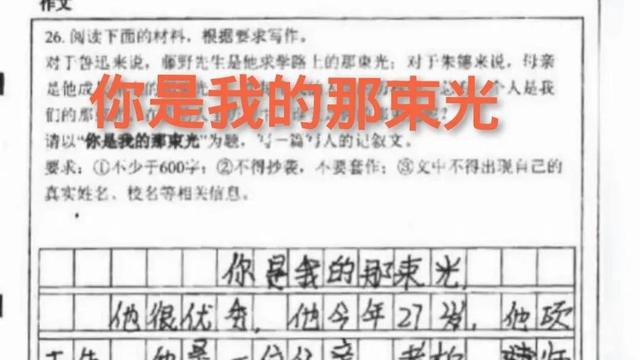 作文
26.阅读下面的材料，根据要求写作。
对于鲁迅来说，藤野先生是他求学路上的那束光；对于朱德来说，母亲
是他成 的 个人是我
们的那
你是我的那束光
请以“你是我的那束光”为题，写一篇写人的记叙文。
要求：①不少于600字；②不得抄袭，不要套作；③文中不得出现自己的
真实姓名、校名等相关信息。
你是我的那束光
他很优秀，他今年27岁，他硕